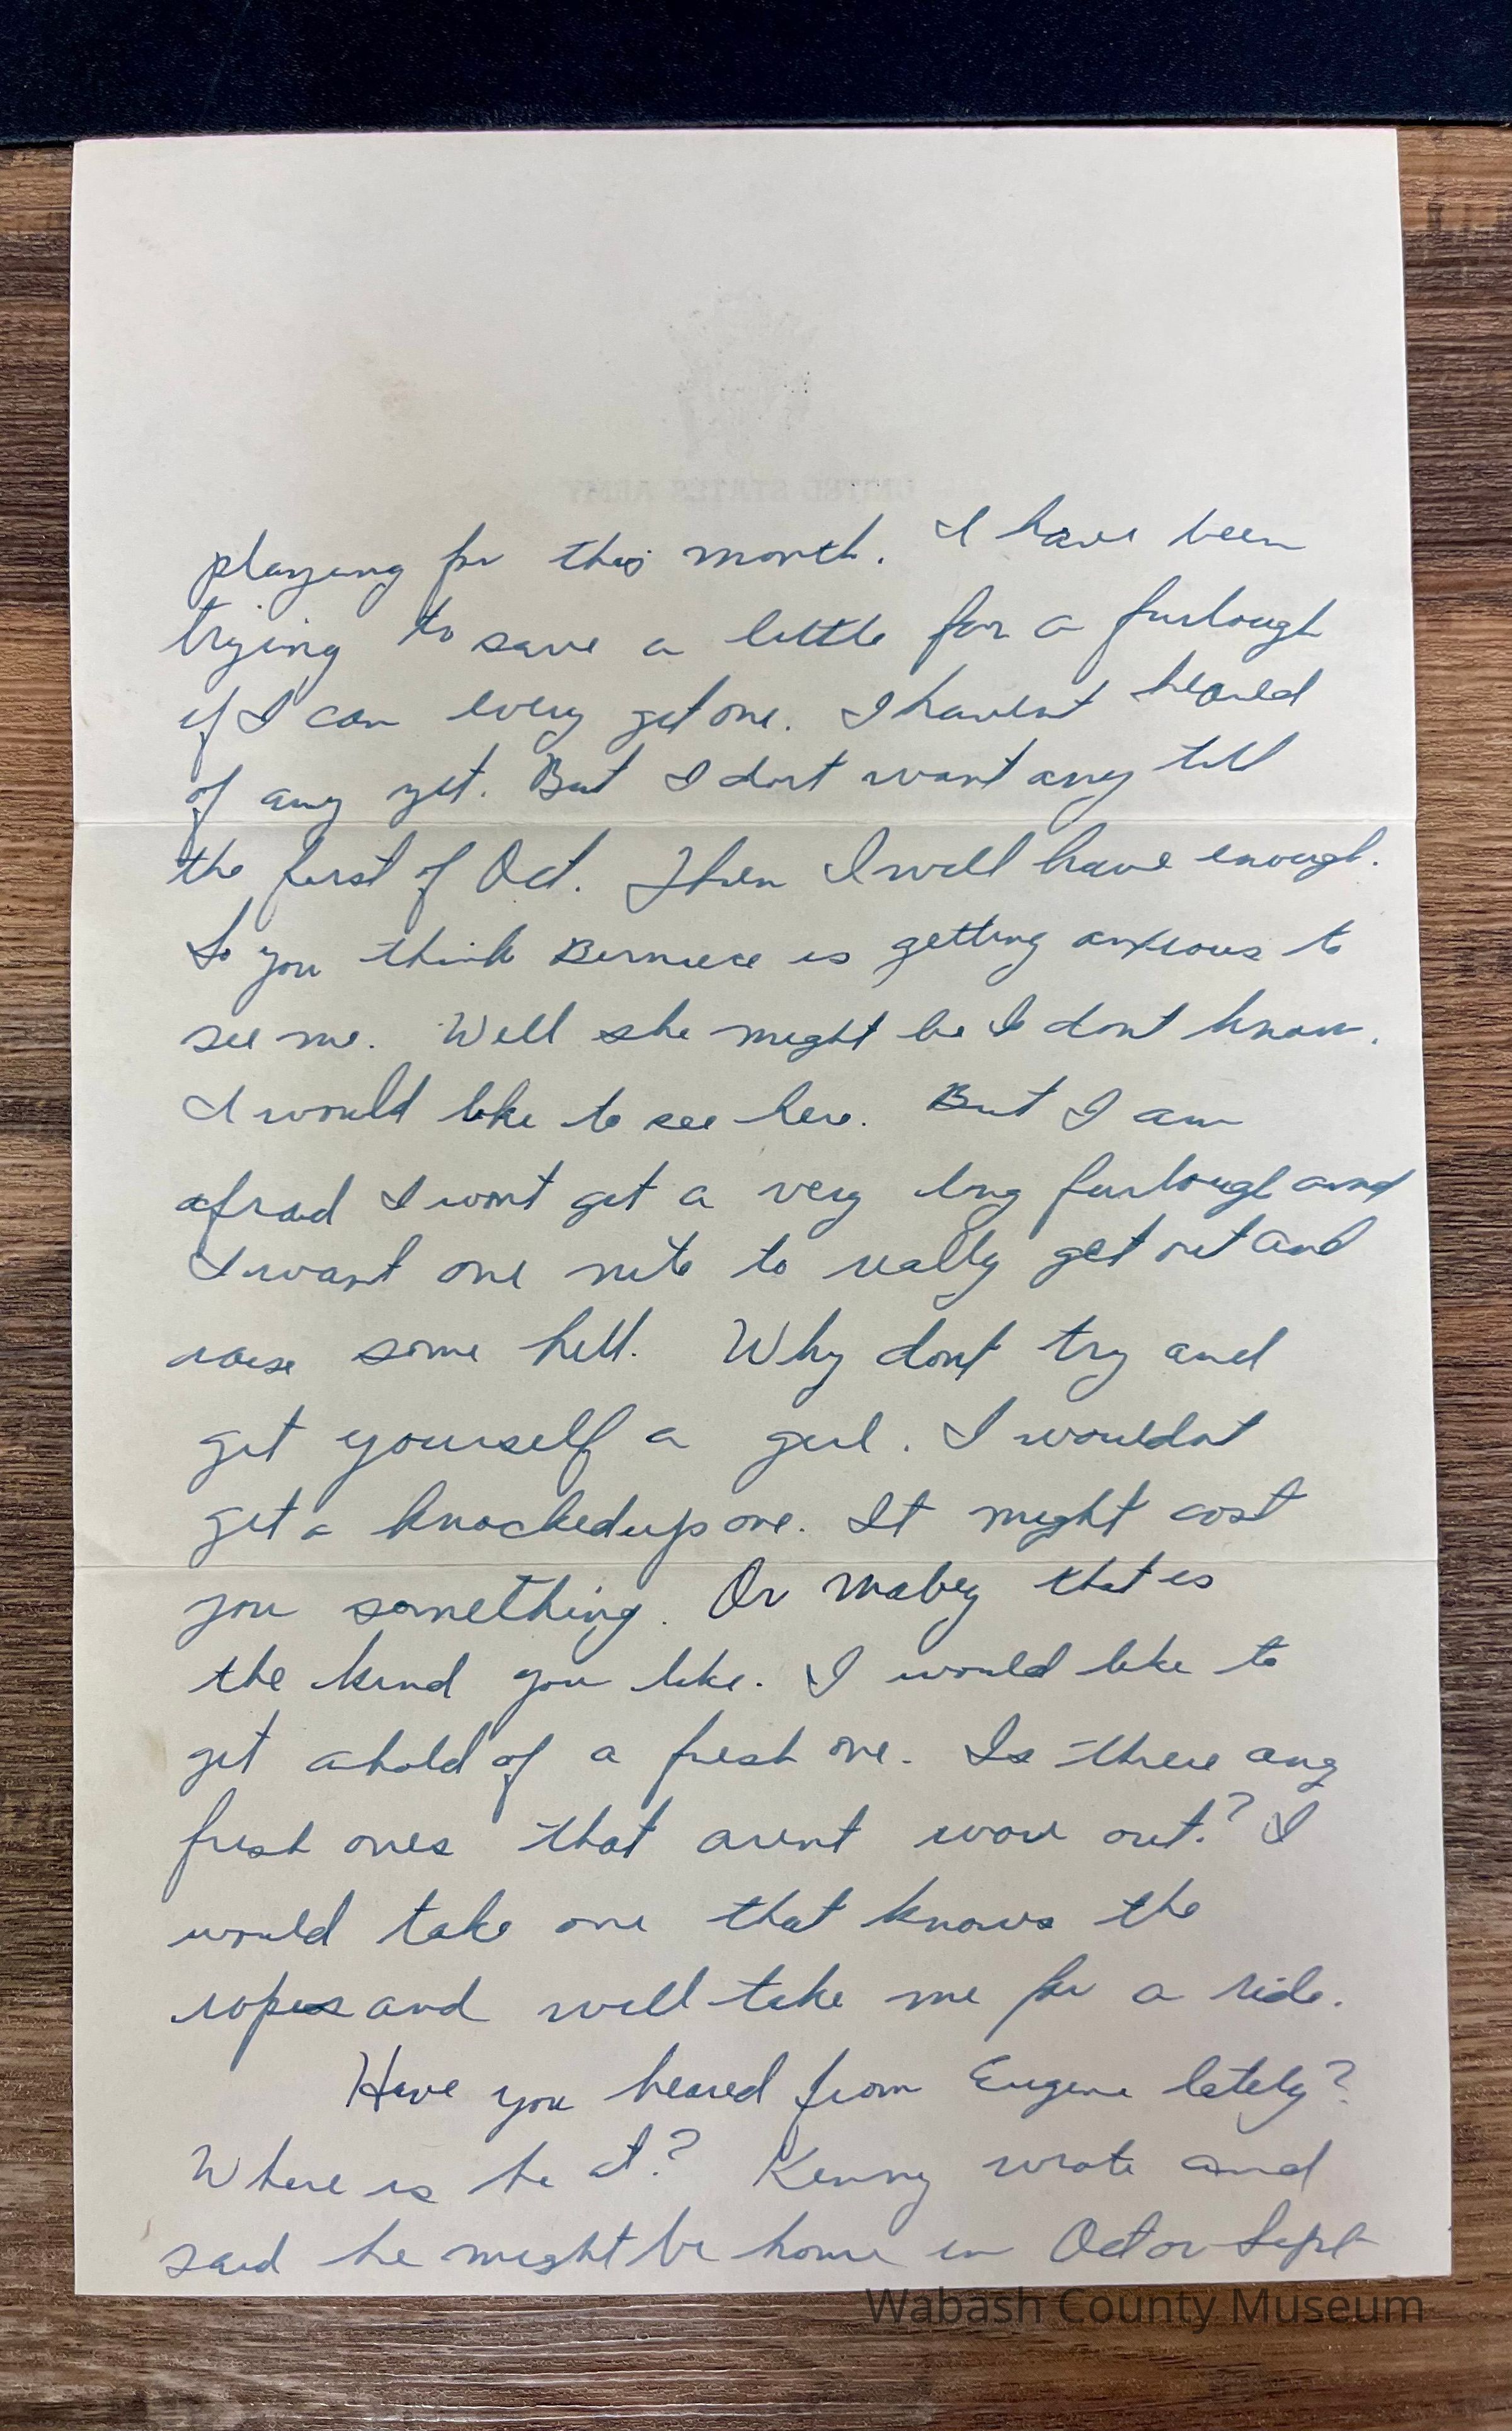 UNITED STATES ARMY
playing for this month. I have been
trying to save a little for a furlough
if I can every get one. I havent heared
of any yet. But I dont want any till
the first of Oct. Then I will have enough.
So you think Berniece is getting anxious to
see me. Well she might be I dont know.
I would like to see her. But I am
afraid I wont get a very long furlough and
I want one nite to really get out and
raise some hell. Why dont try and
get yourself a girl. I wouldnt
get a knockedup one. It might cost
you something. Or mabey that is
the kind you like. I would like to
get ahold of a fresh one. Is there any
fresh ones that arent wore out? I
would take one that knows the
ropes and will take me for a ride.
Have you heared from Eugene lately?
Where is he at? Kenny wrote and
said he might be home in Oct or Sept
Wabash County Museum